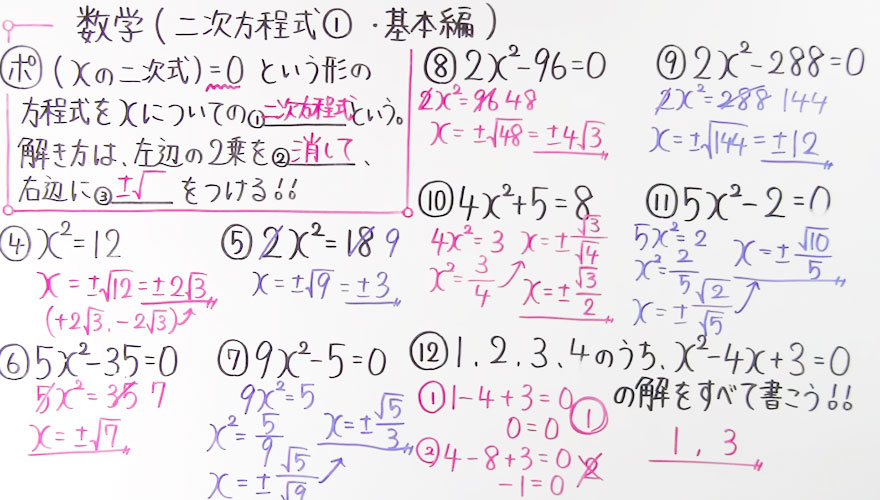 数学(二次方程式①・基本編)
ポ (xの二次式)=0 という形の
方程式をxについての①二次方程式という。
解き方は、左辺の2乗を②消して、
右辺に③±√ をつける!!
④ x²=12
x=±√12=±2√3
(+2√3,-2√3)
⑤ 2x²=18 9
x=±√9=±3
⑥ 5x²-35=0
5x²=35 7
x=±√7
⑦ 9x²-5=0
9x²=5
x²=5/9
x=±√5/√9
x=±√5/3
⑧ 2x²-96=0
2x²=96 48
x=±√48=±4√3
⑨ 2x²-288=0
2x²=288 144
x=±√144=±12
⑩ 4x²+5=8
4x²=3
x²=3/4
x=±√3/√4
x=±√3/2
⑪ 5x²-2=0
5x²=2
x²=2/5
x=±√2/√5
x=±√10/5
⑫ 1、2、3、4のうち、x²-4x+3=0
の解をすべて書こう!!
① 1-4+3=0
0=0 ①
② 4-8+3=0
-1=0 ②
1, 3